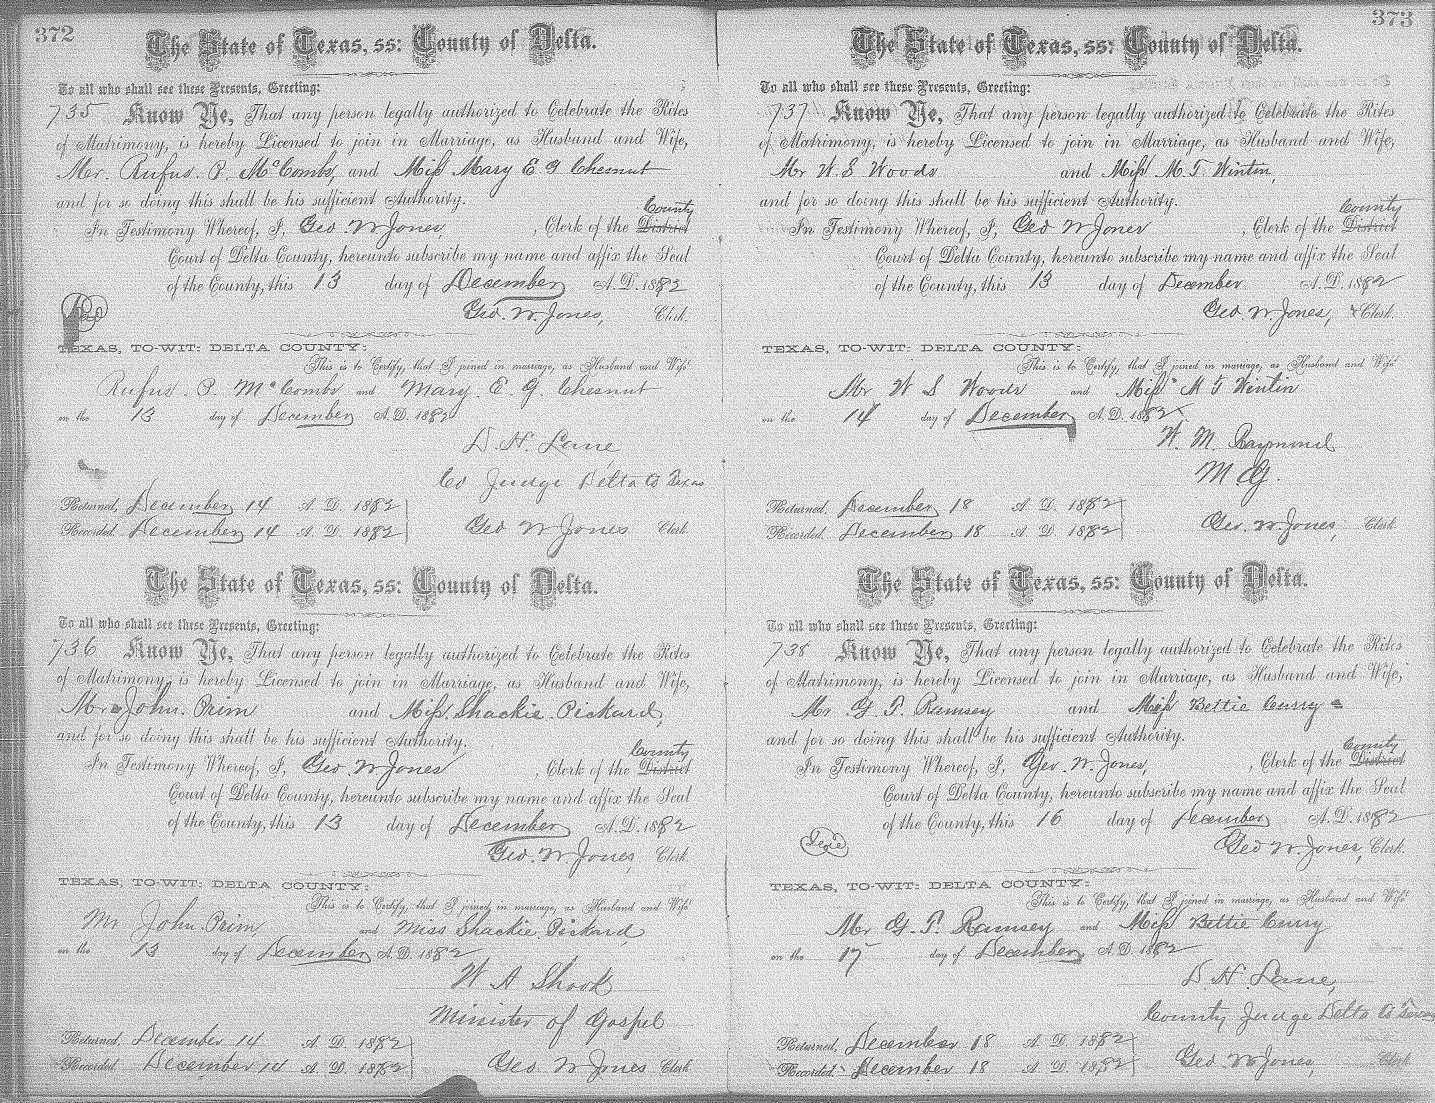 372
The State of Texas, ss: County of Delta.
To all who shall see these Presents, Greeting:
735 Know Ye, That any person legally authorized to Celebrate the Rites
of Matrimony, is hereby Licensed to join in Marriage, as Husband and Wife,
Mr. Rufus. P. McCombs, and Miss Mary E G Chesnut
and for so doing this shall be his sufficient Authority.
County
In Testimony Whereof, I, Geo. W Jones, , Clerk of the District
Court of Delta County, hereunto subscribe my name and affix the Seal
of the County, this 13 day of December A.D. 1882
Geo. W. Jones, Clerk.
TEXAS, TO-WIT: DELTA COUNTY:
This is to Certify, that I joined in marriage, as Husband and Wife
Rufus. P. McCombs and Mary. E. G. Chesnut
on the 13 day of December A.D. 1882
D. H. Lane
Co Judge Delta Co Texas
Returned, December 14 A. D. 1882
Recorded. December 14 A. D. 1882 Geo W Jones Clerk
The State of Texas, ss: County of Delta.
To all who shall see these Presents, Greeting:
736 Know Ye, That any person legally authorized to Celebrate the Rites
of Matrimony, is hereby Licensed to join in Marriage, as Husband and Wife,
Mr. John. Prim and Miss. Shackie. Pickard,
and for so doing this shall be his sufficient Authority.
County
In Testimony Whereof, I, Geo. W Jones , Clerk of the District
Court of Delta County, hereunto subscribe my name and affix the Seal
of the County, this 13 day of December A.D. 1882
Geo. W. Jones, Clerk.
TEXAS, TO-WIT: DELTA COUNTY:
This is to Certify, that I joined in marriage, as Husband and Wife
Mr John. Prim, and Miss Shackie. Pickard,
on the 13 day of December A.D. 1882
W A Shook
Minister of Gospel
Returned, December 14 A. D. 1882
Recorded. December 14 A. D. 1882 Geo. W Jones Clerk
373
The State of Texas, ss: County of Delta.
To all who shall see these Presents, Greeting:
737 Know Ye, That any person legally authorized to Celebrate the Rites
of Matrimony, is hereby Licensed to join in Marriage, as Husband and Wife,
Mr W. S Woods and Miss M. T Wintin,
and for so doing this shall be his sufficient Authority.
County
In Testimony Whereof, I, Geo W Jones , Clerk of the District
Court of Delta County, hereunto subscribe my name and affix the Seal
of the County, this 13 day of December A.D. 1882
Geo. W. Jones, Clerk.
TEXAS, TO-WIT: DELTA COUNTY:
This is to Certify, that I joined in marriage, as Husband and Wife
Mr W S Woods and Miss M T Wintin
on the 14 day of December A.D. 1882
W. M. Raymond
M G.
Returned, December 18 A. D. 1882
Recorded. December 18 A. D. 1882 Geo. W Jones, Clerk
The State of Texas, ss: County of Delta.
To all who shall see these Presents, Greeting:
738 Know Ye, That any person legally authorized to Celebrate the Rites
of Matrimony, is hereby Licensed to join in Marriage, as Husband and Wife,
Mr G. T. Ramsey and Miss Bettie Curry
and for so doing this shall be his sufficient Authority.
County
In Testimony Whereof, I, Geo. W. Jones, , Clerk of the District
Court of Delta County, hereunto subscribe my name and affix the Seal
of the County, this 16 day of December A.D. 1882
Geo W. Jones, Clerk.
TEXAS, TO-WIT: DELTA COUNTY:
This is to Certify, that I joined in marriage, as Husband and Wife
Mr G. T. Ramsey and Miss Bettie Curry
on the 17 day of December A.D. 1882
D H. Lane,
County Judge Delta Co Texas
Returned, December 18 A. D. 1882
Recorded. December 18 A. D. 1882 Geo W Jones, Clerk